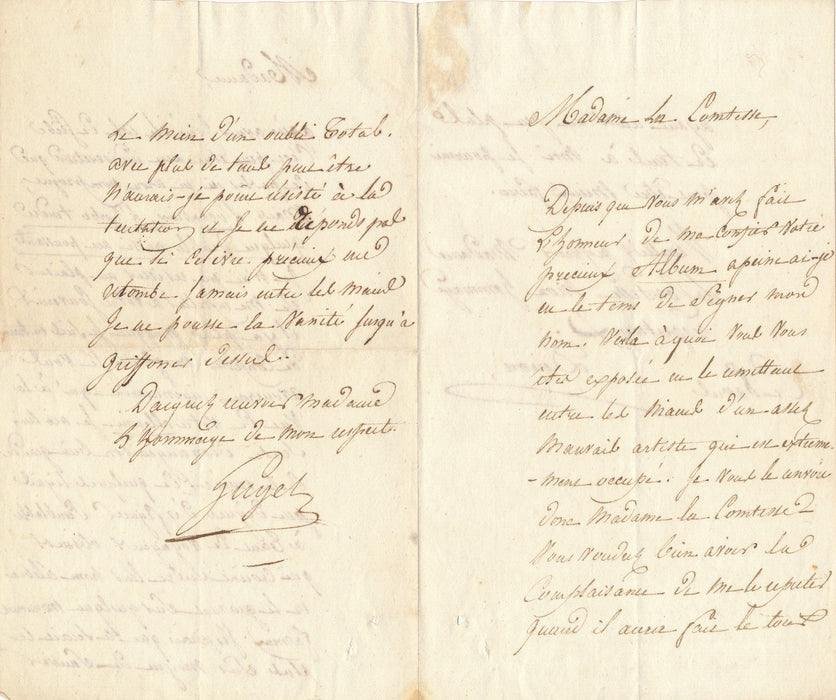 Madame La Comtesse,
Depuis que vous m'avez fait
L'honneur de me confier votre
precieux Album a peine ai-je
eu le tems de signer mon
nom. voila à quoi vous vous
etes exposée en le remettant
entre les mains d'un assez
mauvais artiste qui est extreme-
-ment occupé. Je vous le envoie
donc Madame la Comtesse
vous voudrez bien avoir la
Complaisance de me le
quand il aura fait le tour
Le mien d'un oubli total.
avec plus de tems peut être
n'aurais-je point résisté à la
tentation et Je ne réponds pas
que si ce livre précieux me
retombe jamais entre les mains
Je ne pousse la vanité jusqu'à
griffonner dessus..
Daignez recevoir madame
L'hommage de mon respect.